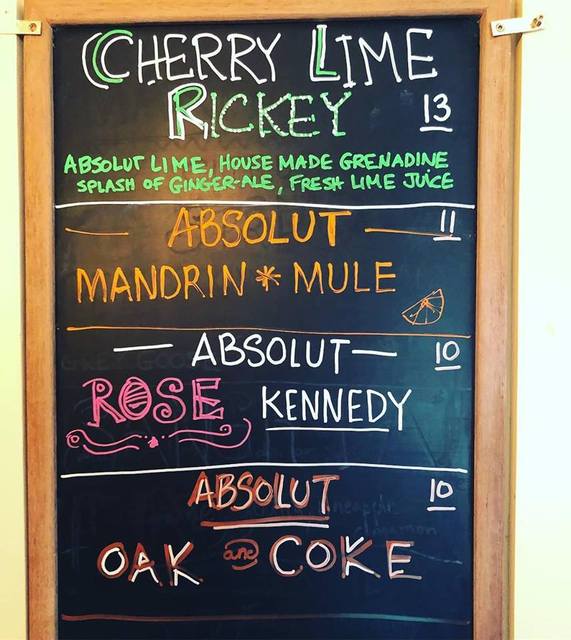 CHERRY LIME
RICKEY 13
ABSOLUT LIME, HOUSE MADE GRENADINE
SPLASH OF GINGER-ALE, FRESH LIME JUICE
— ABSOLUT — 11
MANDRIN * MULE
— ABSOLUT — 10
ROSE KENNEDY
ABSOLUT 10
OAK and COKE